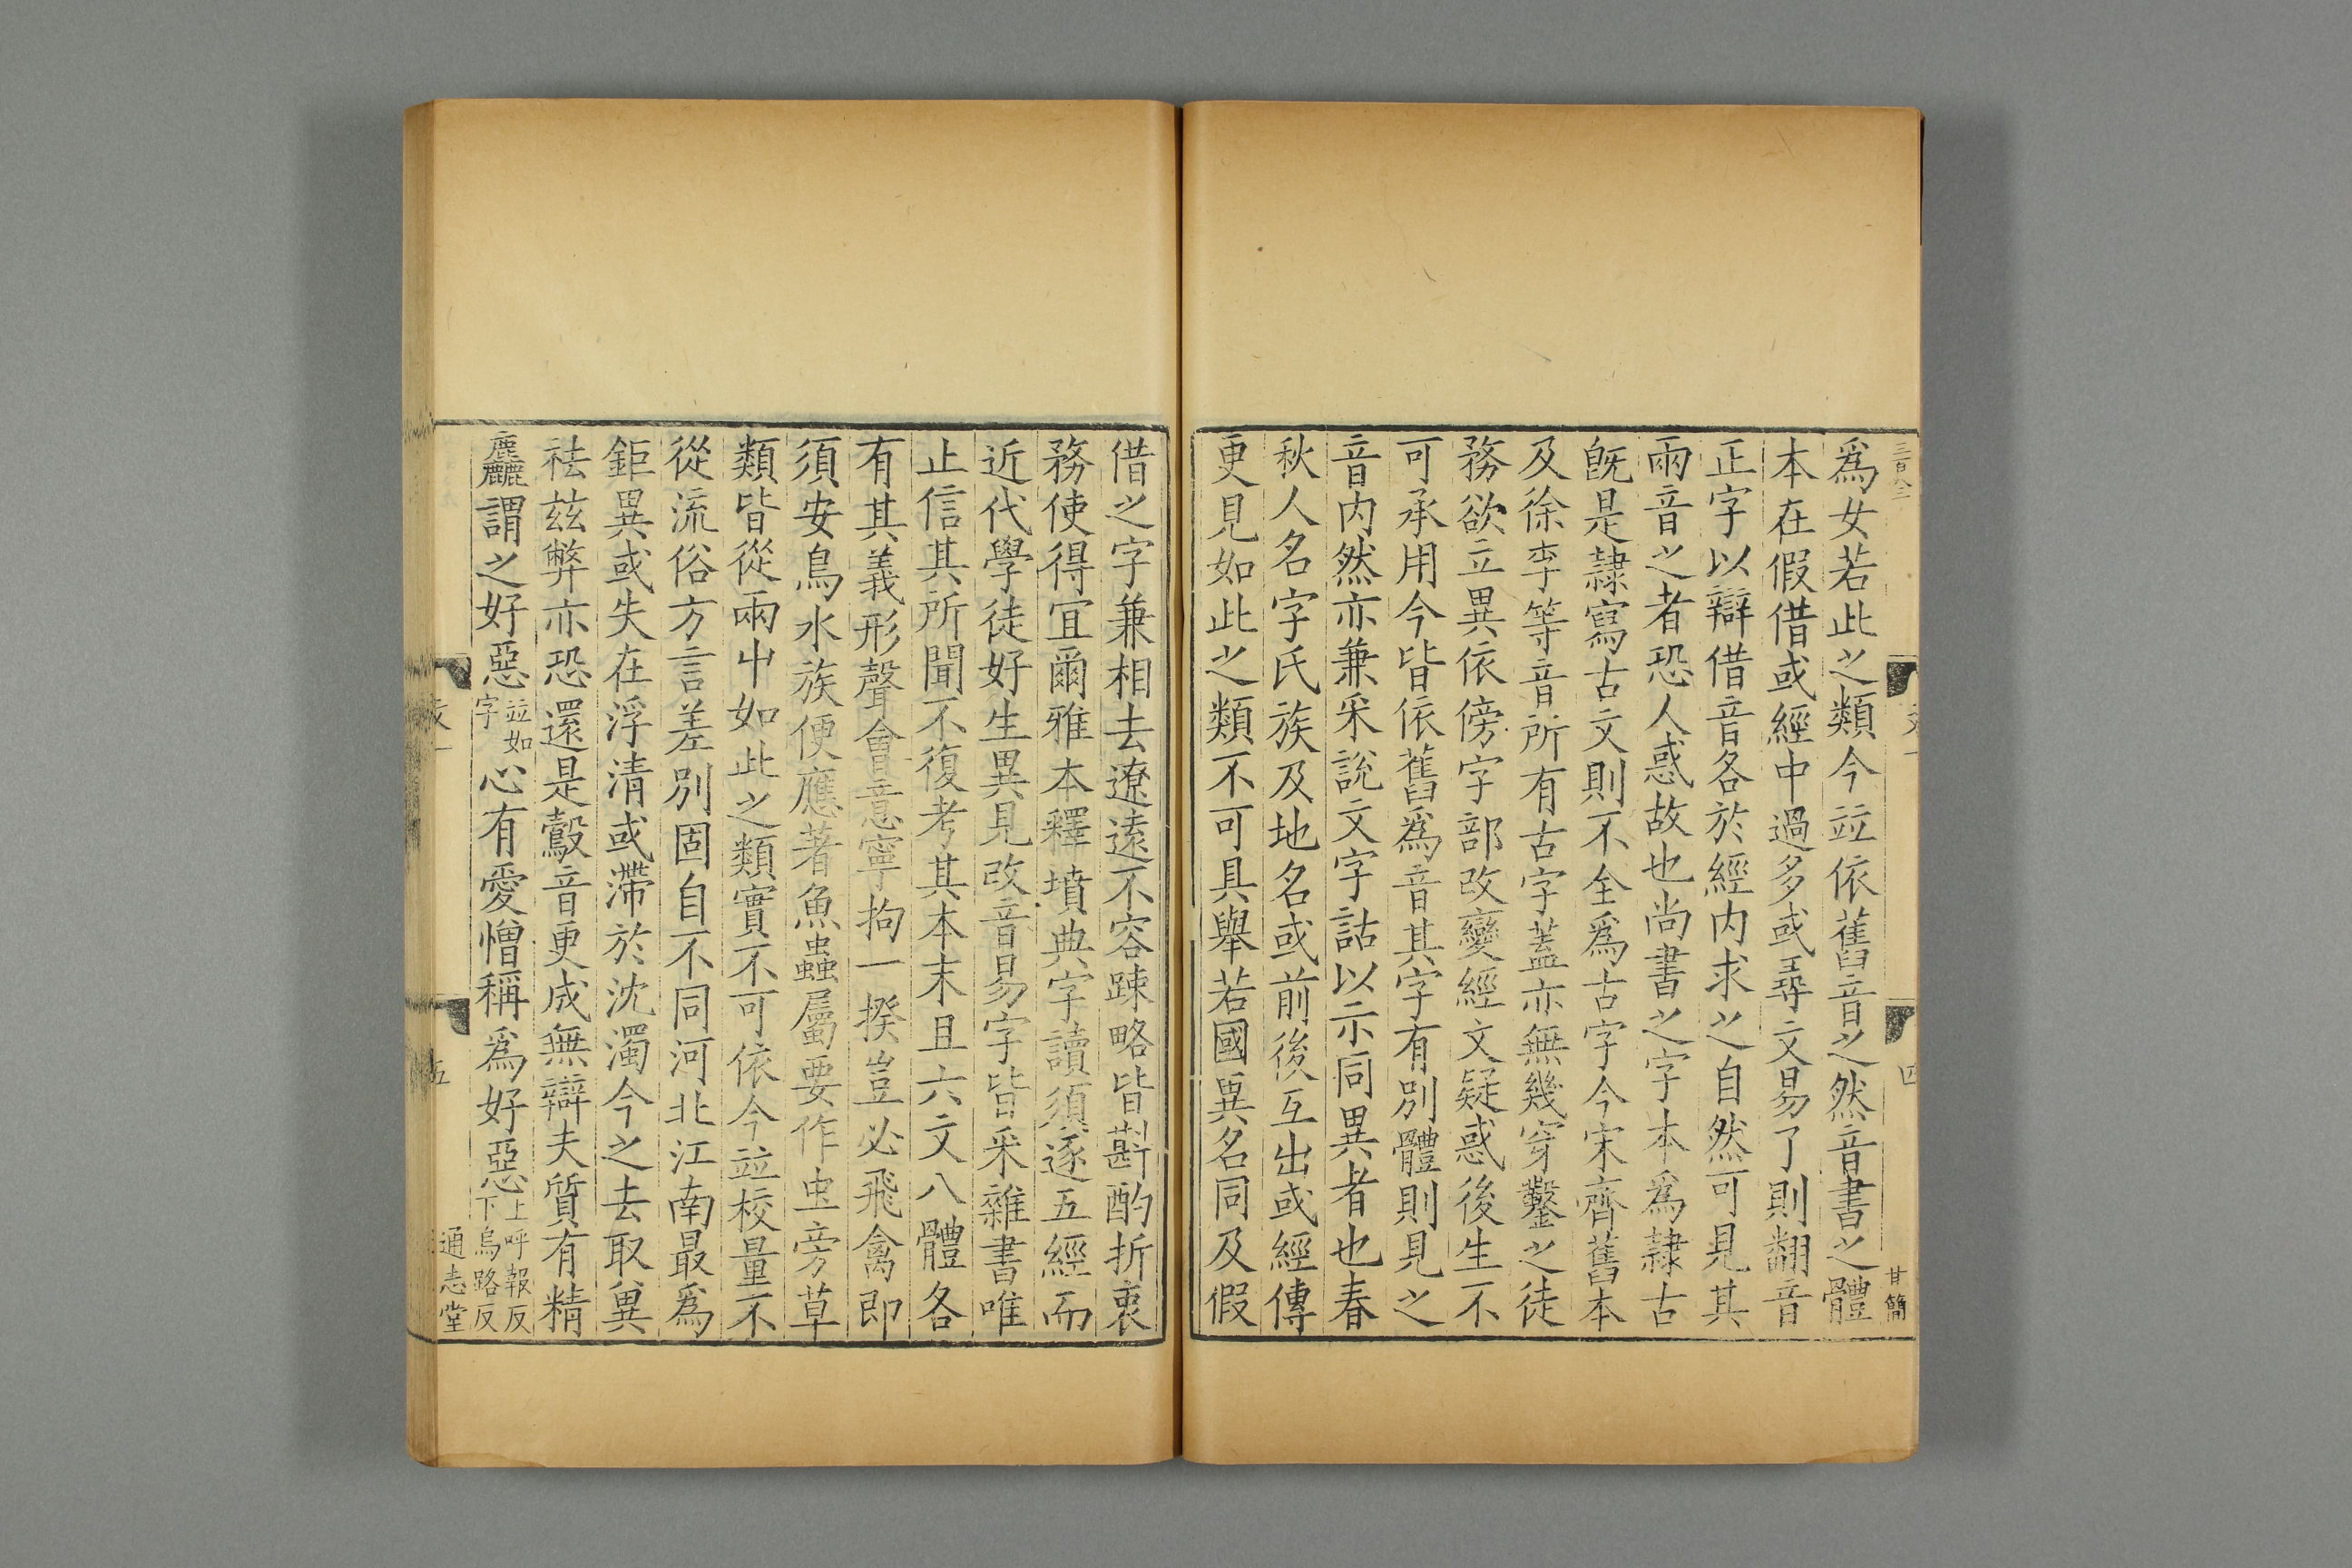 三百八三
甘簡
四
爲女若此之類今竝依舊音之然音書之體
本在假借或經中過多或尋文易了則翻音
正字以辯借音各於經内求之自然可見其
兩音之者恐人惑故也尚書之字本爲隷古
旣是隷寫古文則不全爲古字今宋齊舊本
及徐李等音所有古字蓋亦無幾穿鑿之徒
務欲立異依傍字部改變經文疑惑後生不
可承用今皆依舊爲音其字有別體則見之
音内然亦兼采說文字詁以示同異者也春
秋人名字氏族及地名或前後互出或經傳
更見如此之類不可具舉若國異名同及假
借之字兼相去遼遠不容踈略皆斟酌折衷
務使得宜爾雅本釋墳典字讀須逐五經而
近代學徒好生異見改音易字皆采雜書唯
止信其所聞不復考其本末且六文八體各
有其義形聲會意寧拘一揆豈必飛禽即
須安鳥水族便應著魚蟲屬要作虫旁草
類皆從兩屮如此之類實不可依今竝校量不
從流俗方言差別固自不同河北江南最爲
鉅異或失在浮清或滯於沈濁今之去取異
袪茲弊亦恐還是鷇音更成無辯夫質有精
麤謂之好惡竝如字心有愛憎稱爲好惡上呼報反下烏路反
五
通志堂